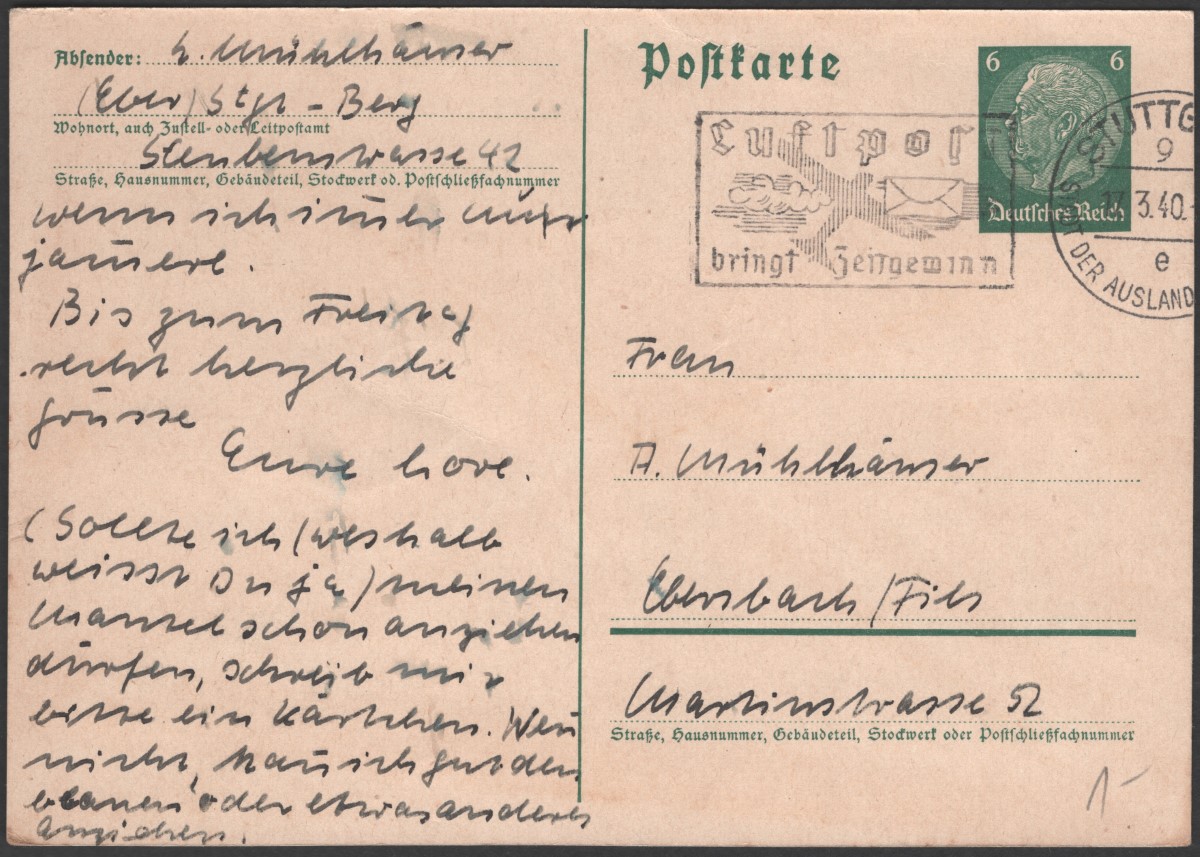 Absender: L. Mühlhäuser
(Eber) Stgt - Berg
Wohnort, auch Zustell- oder Leitpostamt
Steubenstrasse 42
Straße, Hausnummer, Gebäudeteil, Stockwerk od. Postschließfachnummer
wenn ich
jamere.
Bis zum Freitag
recht herzliche
Grüsse
Eure Lore.
(Sollte ich (weshalb
weisst Du ja) meinen
Mantel schon anziehen
dürfen, schreib mir
bitte ein Kärtchen. Wen̄
nicht, kan̄ ich gut den
blauen oder etwas anderes
anziehen.
Postkarte
6 6
Deutsches Reich
Luftpost
bringt Zeitgewinn
STUTTG
9
17.3.40.
e
STADT DER AUSLAND
Frau
A. Mühlhäuser
Ebersbach/Fils
Martinstrasse 52
Straße, Hausnummer, Gebäudeteil, Stockwerk oder Postschließfachnummer
1-